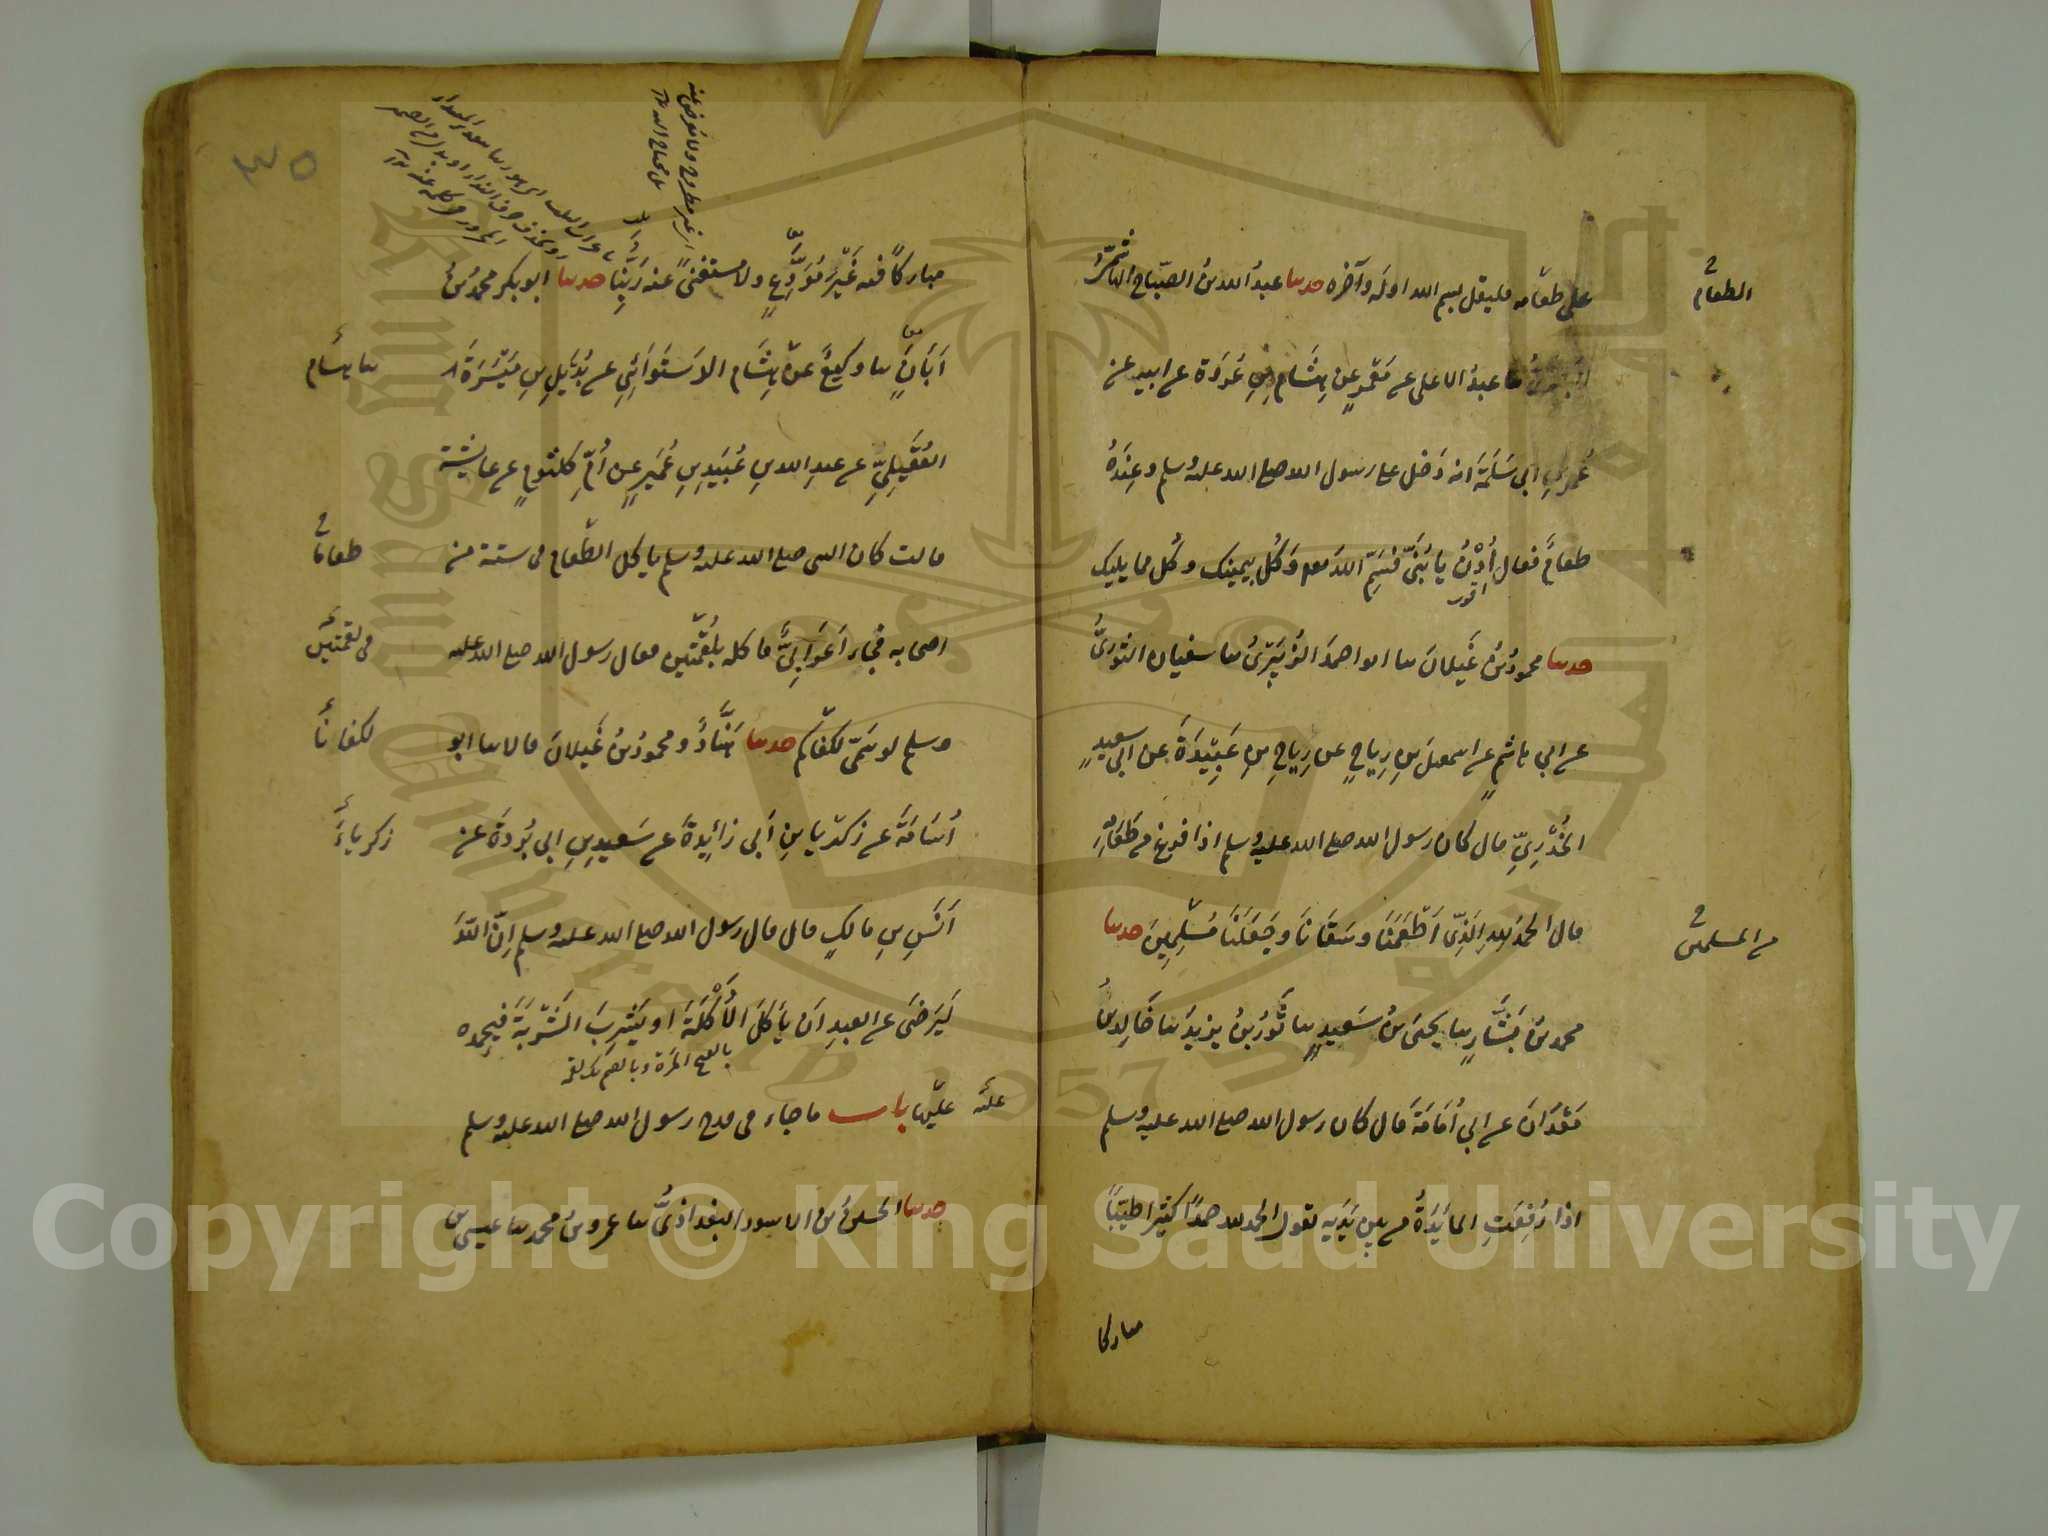 على طعامه فليقل بسم الله اوله وآخره حدثنا عبد الله بن الصباح الهاشمي
الطعام
عبد الاعلى عن معمر عن هشام بن عروة عن ابيه عن
عمر بن ابي سلمة انه دخل على رسول الله صلى الله عليه وسلم وعنده
طعام فقال ادن يا بني فسم الله وكل بيمينك وكل مما يليك
حدثنا محمود بن غيلان ثنا ابو احمد الزبيري ثنا سفيان الثوري
عن ابي هاشم عن اسمعيل بن رياح عن رياح بن عبيدة عن ابي سعيد
الخدري قال كان رسول الله صلى الله عليه وسلم اذا فرغ من طعامه
قال الحمد لله الذي اطعمنا وسقانا وجعلنا مسلمين حدثنا
من المسلمين
محمد بن بشار ثنا يحيى بن سعيد ثنا ثور بن يزيد ثنا خالد بن
معدان عن ابي امامة قال كان رسول الله صلى الله عليه وسلم
اذا رفعت المائدة من بين يديه يقول الحمد لله حمدا كثيرا طيبا
مباركا
٣٥
مباركا فيه غير مودع ولا مستغنى عنه ربنا حدثنا ابو بكر محمد بن
ابان ثنا وكيع عن هشام الدستوائي عن بديل بن ميسرة
ثنا هشام
العقيلي عن عبد الله بن عبيد بن عمير عن ام كلثوم عن عايشة
قالت كان النبي صلى الله عليه وسلم ياكل الطعام في ستة من
طعاما
اصحابه فجاء اعرابي فاكله بلقمتين فقال رسول الله صلى الله عليه
في لقمتين
وسلم لو سمى لكفاكم حدثنا هناد ومحمود بن غيلان قالا ثنا ابو
لكفانا
اسامة عن زكريا بن ابي زائدة عن سعيد بن ابي بردة عن
زكرياء
انس بن مالك قال قال رسول الله صلى الله عليه وسلم ان الله
ليرضى عن العبد ان ياكل الاكلة او يشرب الشربة فيحمده
عليها باب ما جاء في قدح رسول الله صلى الله عليه وسلم
عليه
حدثنا الحسين بن الاسود البغداذي ثنا عمرو بن محمد ثنا عيسى بن
Copyright © King Saud University
King Saud University
1957